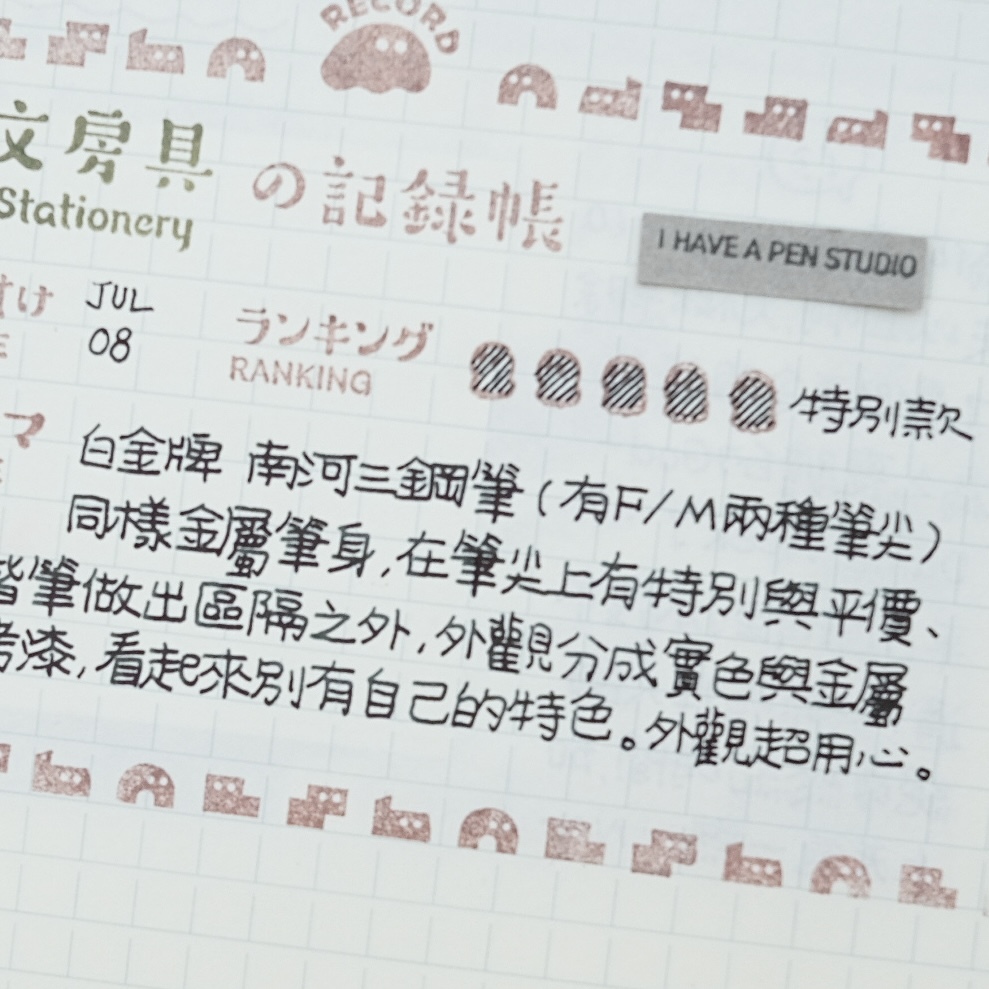 RECORD
文房具 の記録帳
Stationery
I HAVE A PEN STUDIO
け JUL ランキング
08 RANKING
特別款
マ 白金牌 南河三鋼筆(有F/M兩種筆尖)
同樣金屬筆身,在筆尖上有特別與平價、
筆做出區隔之外,外觀分成實色與金屬
漆,看起來別有自己的特色。外觀超用心。